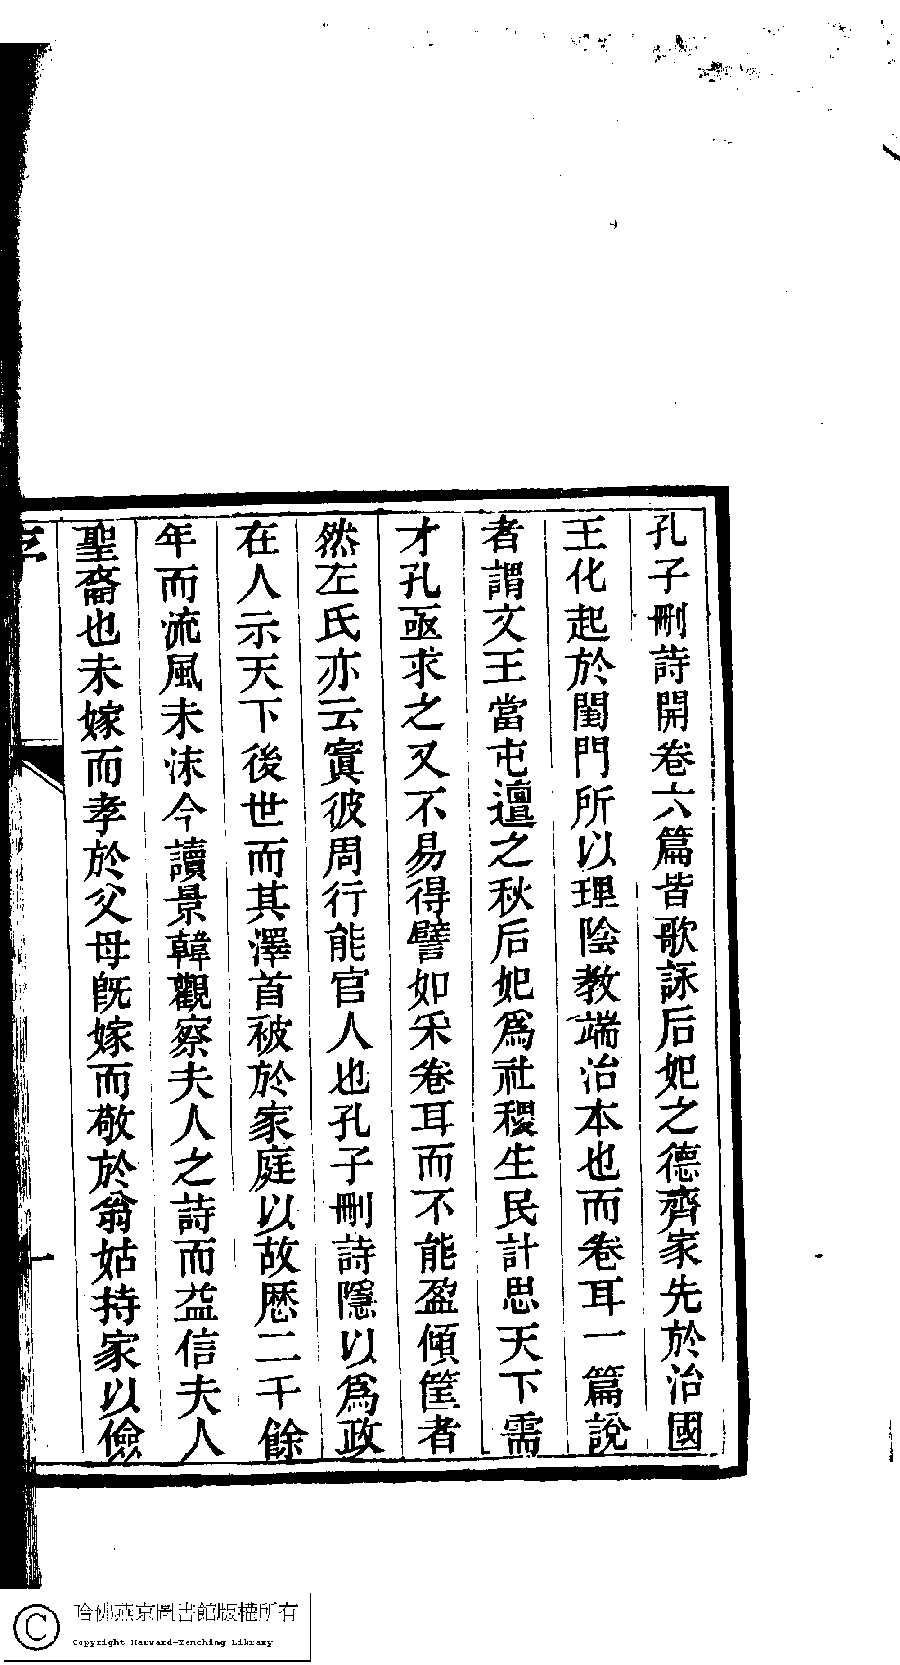 孔子刪詩開卷六篇皆歌詠后妃之德齊家先於治國
王化起於閨門所以理陰教端治本也而卷耳一篇說
者謂文王當屯邅之秋后妃為社稷生民計思天下需
才孔亟求之又不易得譬如采卷耳而不能盈傾筐者
然左氏亦云寘彼周行能官人也孔子刪詩隱以為政
在人示天下後世而其澤首被於家庭以故歷二千餘
年而流風未沫今讀景韓觀察夫人之詩而益信夫人
聖裔也未嫁而孝於父母既嫁而敬於翁姑持家以儉
一
哈佛燕京圖書館版權所有
Copyright Harvard-Yenching Library